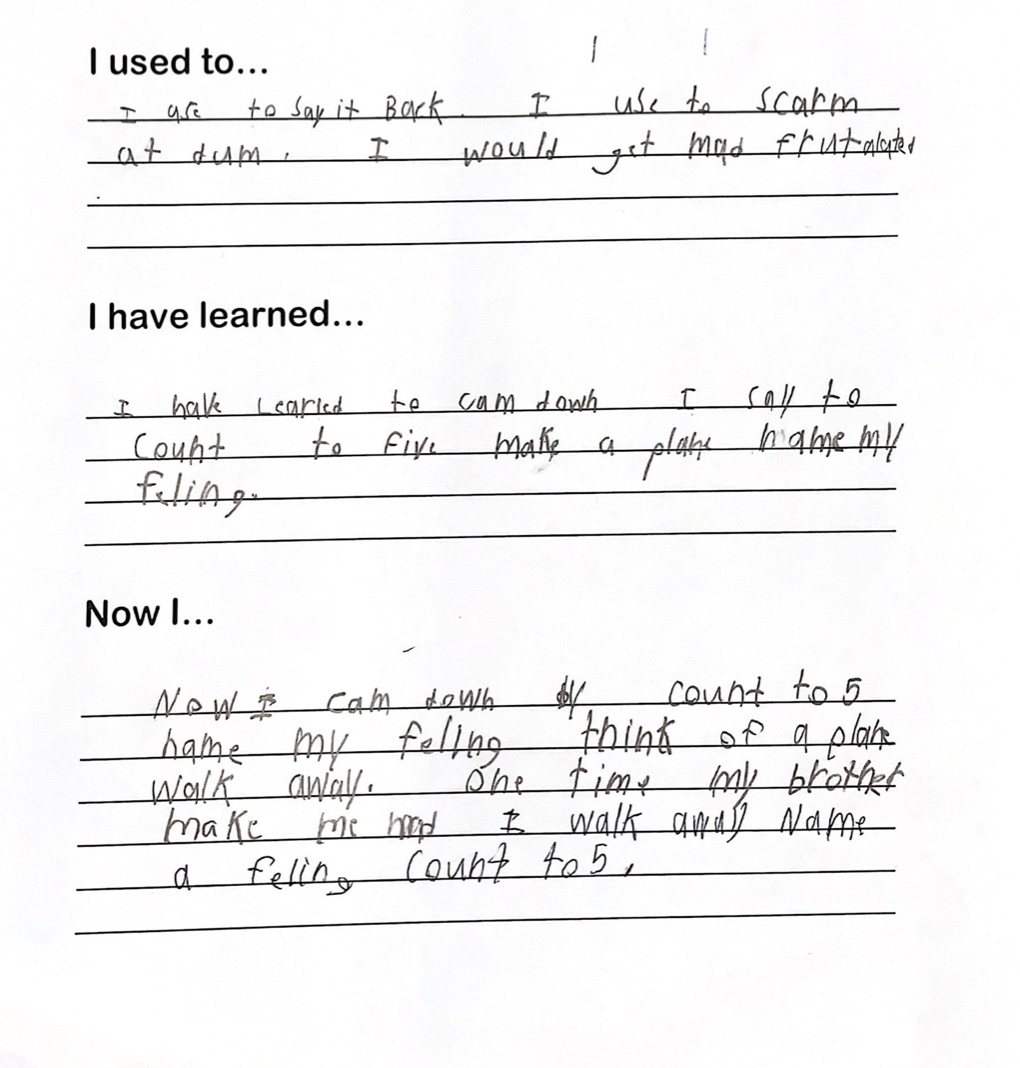 I used to...
I use to say it Back. I use to scarm
at dum. I would get mad frutalated
I have learned...
I have Learied to cam down I say to
count to five make a plane name my
feling.
Now I...
Now I cam down by count to 5
name my feling think of a plane
walk away. One time my brother
make me mad I walk away Name
a feling count to 5.